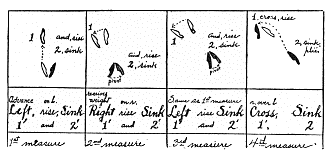 1 and, rise
2, sink
1
and, rise
2, sink
pivot
1
and, rise
2, sink
pivot
1, cross, rise
2, sink
Advance on l.
Left, rise, Sink
1 and 2
weight on r.
Right rise Sink
1 and 2
Same as 1st measure
Left rise Sink
1 and 2
r. over l.
Cross, Sink
1, 2
1st measure
2nd measure
3rd measure
4th measure